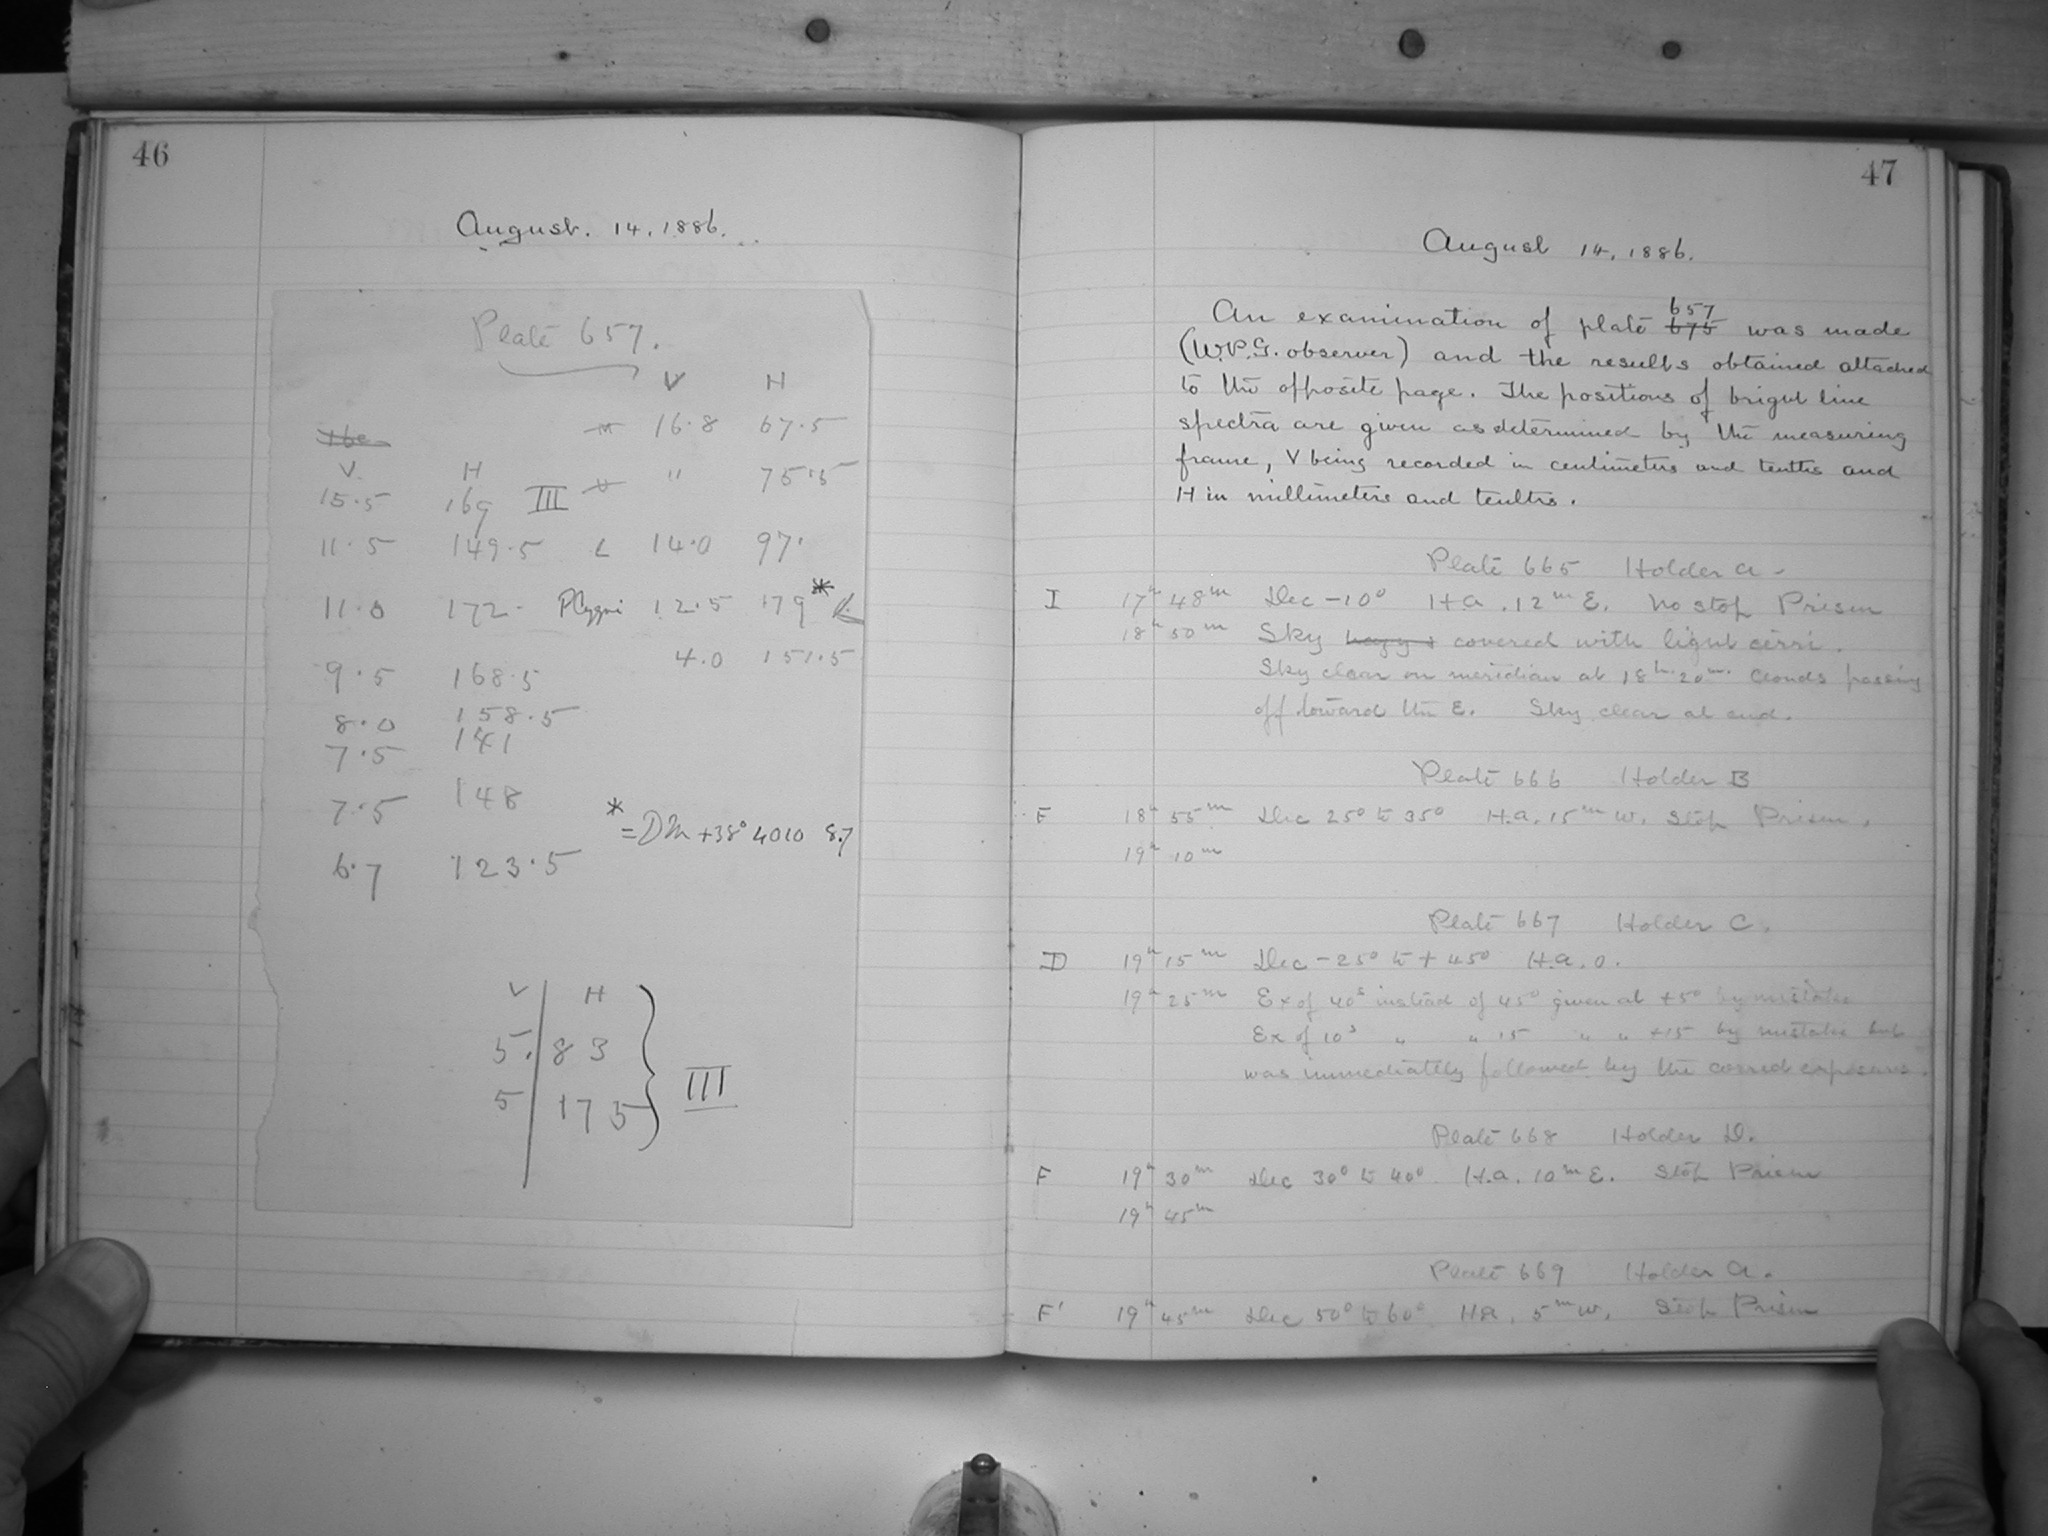 46
August. 14, 1886.
Plate 657.
V H
16.8 67.5
V. H
" 75.5
15.5 169 III
11.5 149.5 L 14.0 97.
11.0 172. P Cygni 12.5 179*
4.0 151.5
9.5 168.5
8.0 158.5
7.5 141
7.5 148
*
= DM +38° 4010 8.7
6.7 123.5
V H
5. 83
III
5 175
47
August 14, 1886.
657
An examination of plate 675 was made
(W.P.G. observer) and the results obtained attached
to the opposite page. The positions of bright line
spectra are given as determined by the measuring
frame, V being recorded in centimeters and tenths and
H in millimeters and tenths.
Plate 665 Holder A.
I 17h 48m Dec -10° H.A. 12m E. No stop Prism
18h 50m Sky covered with light cirri.
Sky clear on meridian at 18h 20m. Clouds passing
off toward the E. Sky clear at end.
Plate 666 Holder B
F 18h 55m Dec 25° to 35° H.A. 15m W. Stop Prism.
19h 10m
Plate 667 Holder C.
D 19h 15m Dec -25° to +45° H.A. 0.
19h 25m Ex of 40s instead of 45s given at +5° by mistake
Ex of 10s " " 15 " " +15 by mistake but
was immediately followed by the correct exposure.
Plate 668 Holder D.
F 19h 30m Dec 30° to 40° H.A. 10m E. Stop Prism
19h 45m
Plate 669 Holder A.
F' 19h 45m Dec 50° to 60° H.A. 5m W. Stop Prism